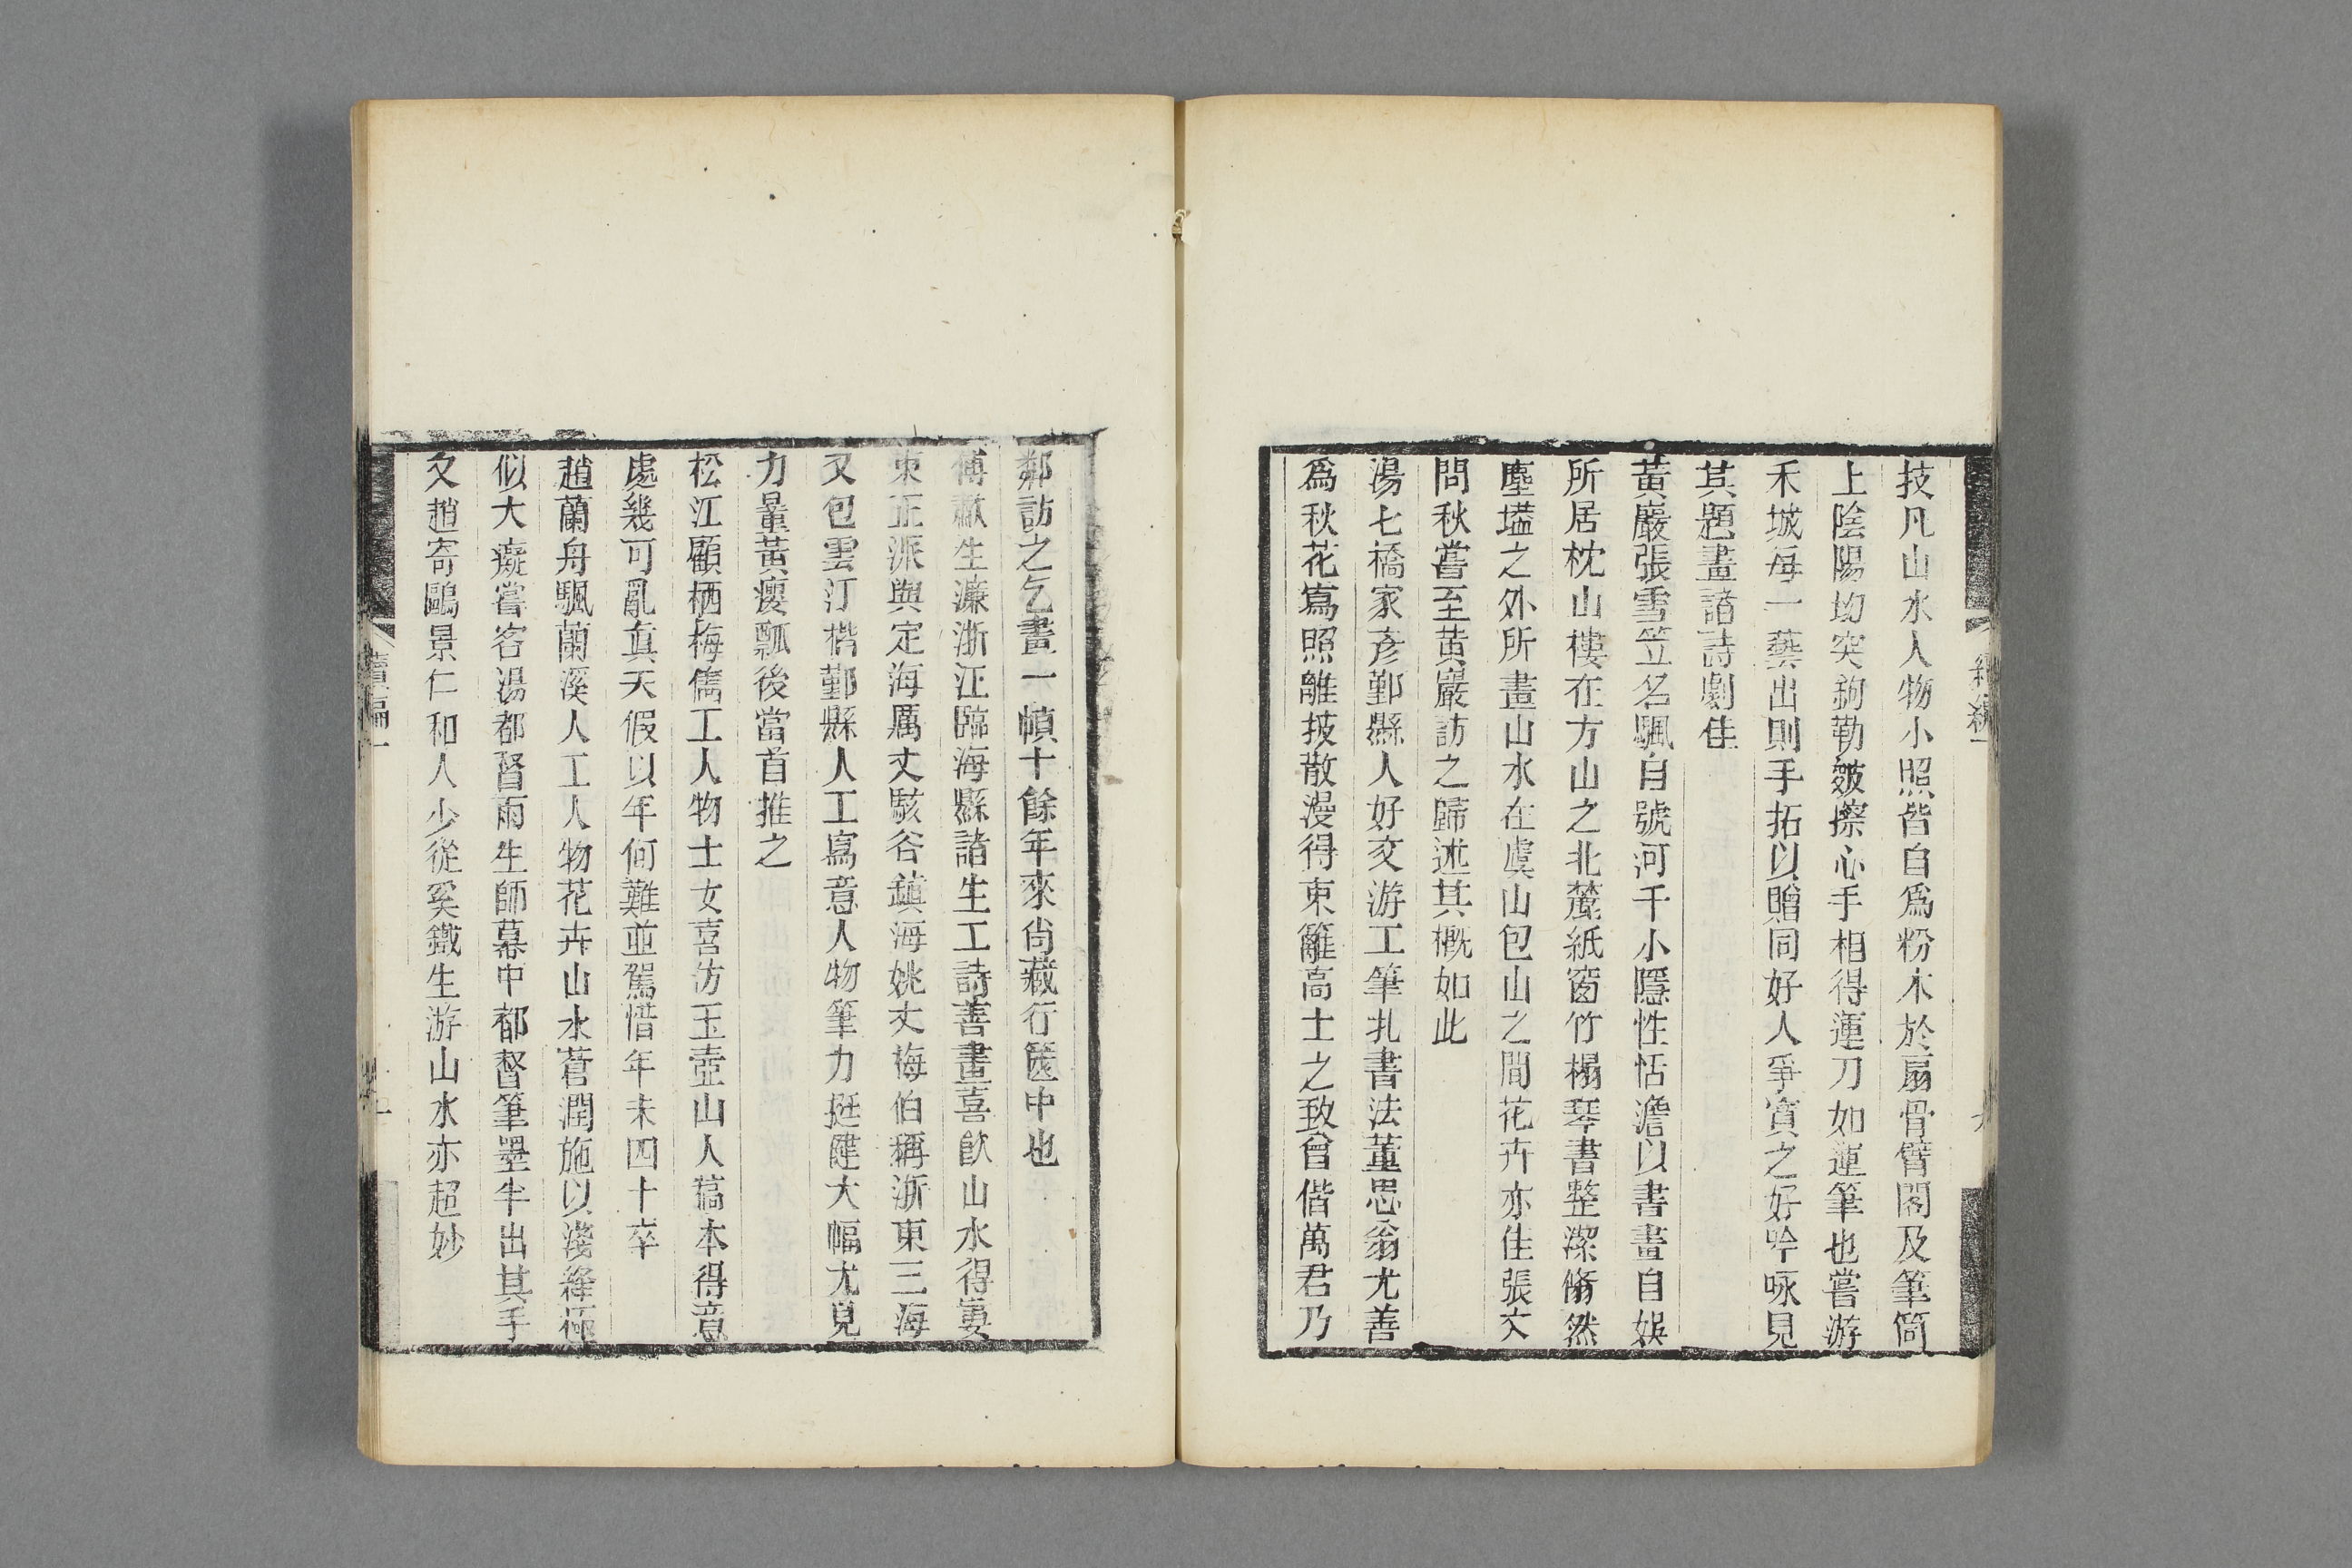 技凡山水人物小照皆自爲粉木於扇骨臂閣及筆筒
上陰陽坳突鉤勒皴擦心手相得運刀如運筆也嘗游
禾城每一藝出則手拓以贈同好人爭寳之好吟咏見
其題畫諸詩劇佳
黃巖張雪笠名颿自號河千小隱性恬澹以書畫自娛
所居枕山樓在方山之北麓紙窗竹榻琴書整潔翛然
塵壒之外所畫山水在虞山包山之間花卉亦佳張文
問秋嘗至黃巖訪之歸述其概如此
湯七橋家彥鄞縣人好交游工筆札書法董思翁尤善
爲秋花寫照離披散漫得東籬高士之致曾偕萬君乃
鄰訪之乞畫一幀十餘年來尙藏行篋中也
傅 生濂浙江臨海縣諸生工詩善畫喜飮山水得婁
東正派與定海厲丈駭谷鎭海姚丈梅伯稱浙東三海
又包雲汀楷鄞縣人工寫意人物筆力挺健大幅尤見
力量黃癭瓢後當首推之
松江顧栖梅儁工人物士女喜仿玉壺山人稿本得意
處幾可亂眞天假以年何難並駕惜年未四十卒
趙蘭舟颿蘭溪人工人物花卉山水蒼潤施以淺絳極
似大癡嘗客湯都督雨生師幕中都督筆墨半出其手
又趙寄鷗景仁和人少從奚鐵生游山水亦超妙
續編一